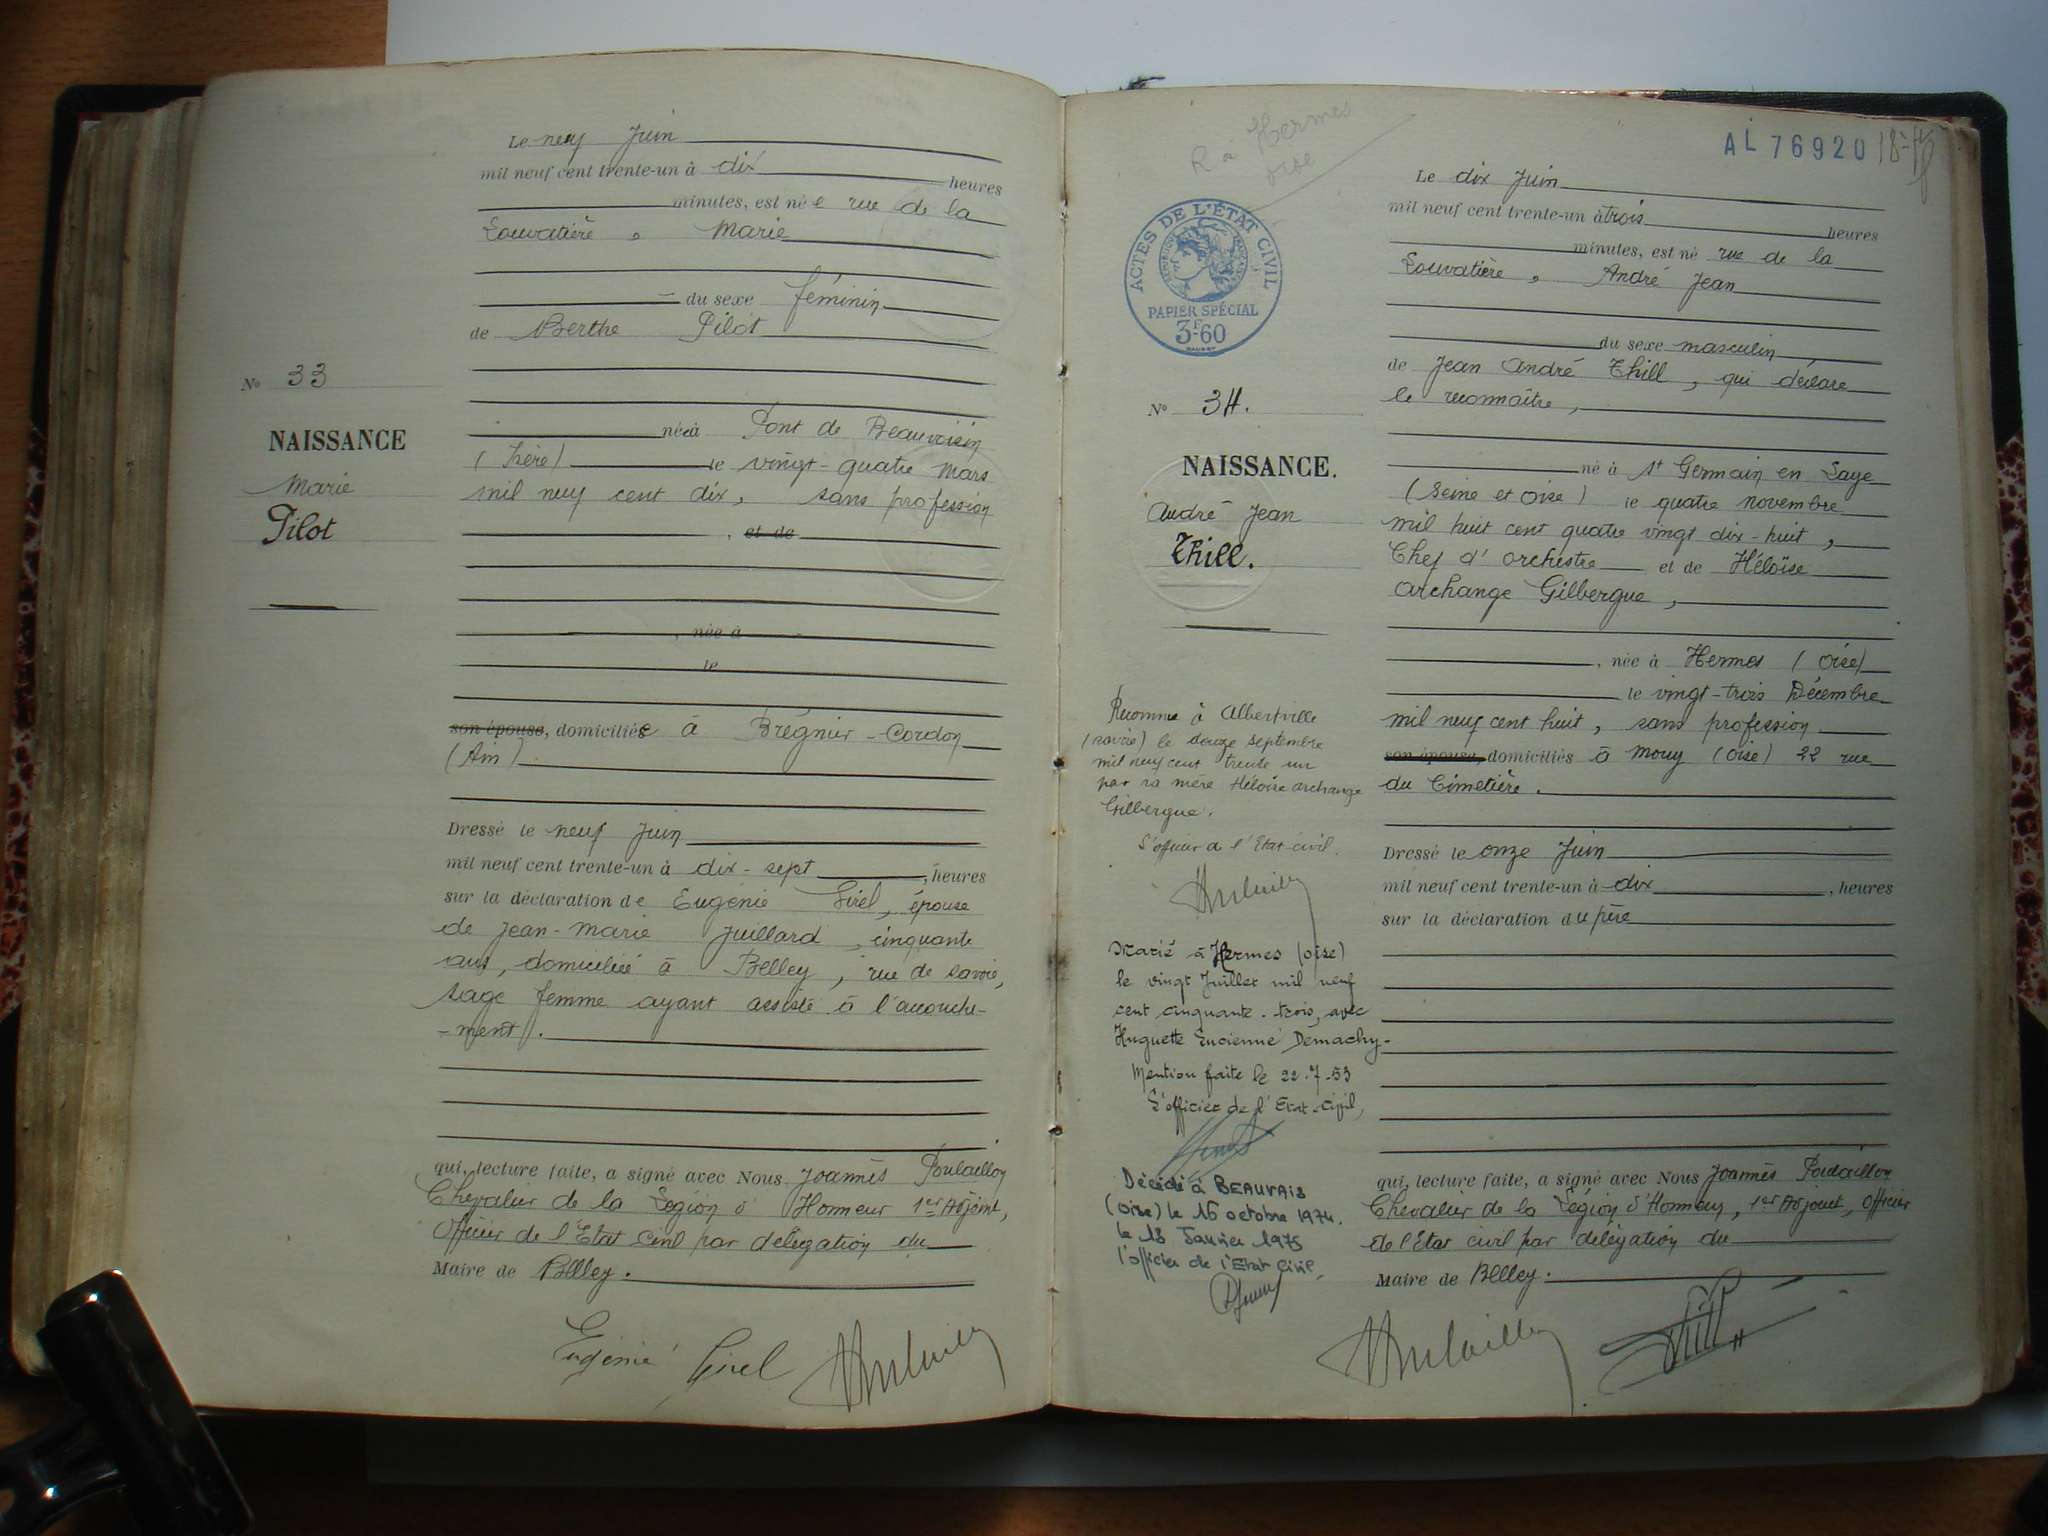 Le neuf Juin
mil neuf cent trente-un à dix heures
minutes, est née rue de la
Louvatière, Marie
du sexe féminin
de Berthe Pilot
No 33
NAISSANCE
Marie
Pilot
née à Pont de Beauvoisin
(Isère) le vingt-quatre Mars
mil neuf cent dix, sans profession
, et de
, née à
le
son épouse, domiciliée à Brégnier-Cordon
(Ain)
Dressé le neuf Juin
mil neuf cent trente-un à dix-sept, heures
sur la déclaration de Eugénie Girel, épouse
de Jean-Marie Juillard, cinquante
ans, domiciliée à Belley, rue de Savoie,
sage femme ayant assisté à l'accouche-
-ment.
qui, lecture faite, a signé avec Nous Joannès Poulaillon
Chevalier de la Légion d'Honneur 1er Adjoint,
Officier de l'Etat Civil par délégation du
Maire de Belley.
Eugénie Girel
R à Hermes
oise
AL 76920
ACTES DE L'ÉTAT CIVIL
PAPIER SPÉCIAL
3F60
Le dix Juin
mil neuf cent trente-un à trois heures
minutes, est né rue de la
Louvatière, André Jean
du sexe masculin
de Jean André Thill, qui déclare
le reconnaître,
No 34.
NAISSANCE.
André Jean
Thill.
né à St Germain en Laye
(Seine et Oise) le quatre novembre
mil huit cent quatre vingt dix-huit,
Chef d'orchestre et de Héloïse
Archange Gilbergue,
, née à Hermes (Oise)
le vingt-trois Décembre
mil neuf cent huit, sans profession
son épouse, domiciliés à Mouy (Oise) 22 rue
du Cimetière.
Dressé le onze Juin
mil neuf cent trente-un à dix, heures
sur la déclaration du père
qui, lecture faite, a signé avec Nous Joannès Poulaillon
Chevalier de la Légion d'Honneur, 1er Adjoint, Officier
de l'Etat civil par délégation du
Maire de Belley.
Reconnu à Albertville
(Savoie) le douze septembre
mil neuf cent trente un
par sa mère Héloïse Archange
Gilbergue.
L'officier de l'Etat-civil.
Marié à Hermes (Oise)
le vingt Juillet mil neuf
cent cinquante-trois, avec
Huguette Lucienne Demachy-
Mention faite le 22-7-53
L'officier de l'Etat-civil,
Décédé à BEAUVAIS
(Oise) le 16 octobre 1974.
le 13 Janvier 1975
l'officier de l'Etat Civil,
Thill